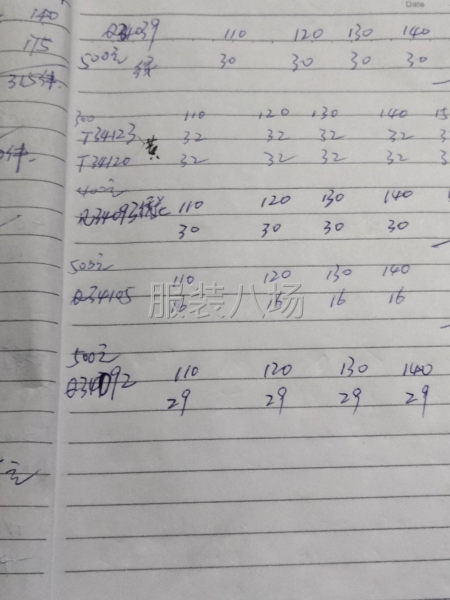 Date
140
175
315件
Q34039 110 120 130 140
500元 绿 30 30 30 30
300 110 120 130 140 15
T34123 黄 32 32 32 32 3
T34120 32 32 32 32 3
400元
110 120 130 140
30 30 30 30
500元 110 120 130 140
Q34105 16 16 16 16
服装八场
500元
Q34092 110 120 130 140
29 29 29 29